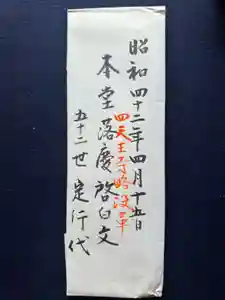 昭和四十二年四月十五日
四天王寺略設草
本堂落慶啓白文
五十二世 定行代